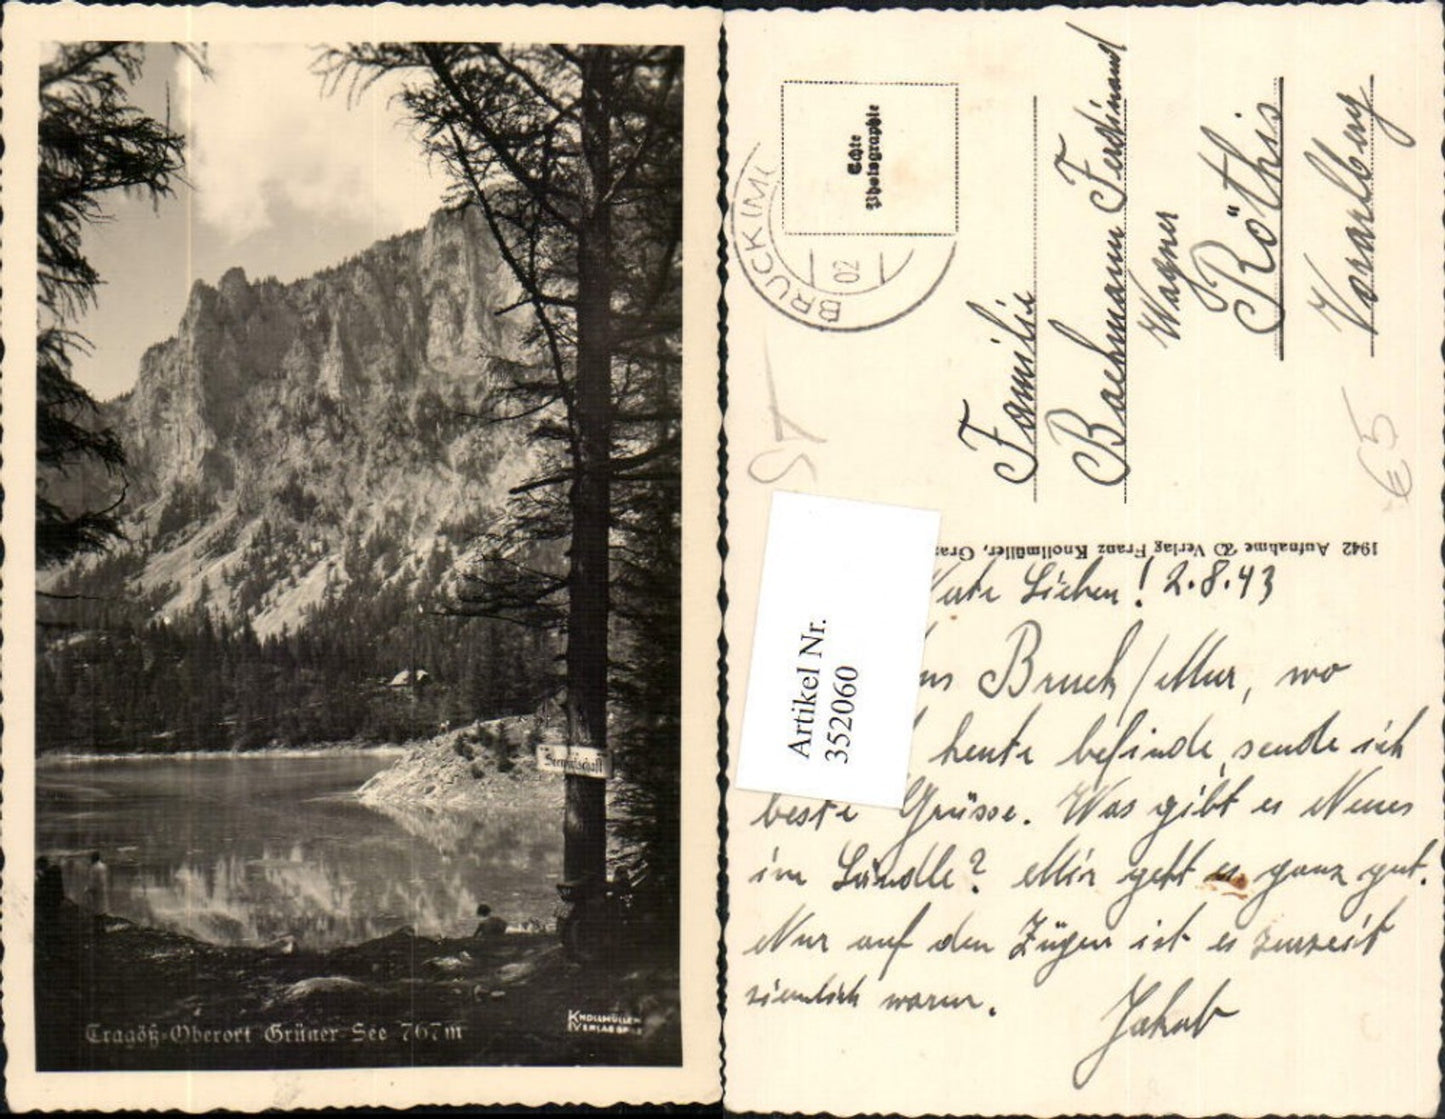 Seewirtschaft
Tragöß-Oberort Grüner See 767m
KNOLLMÜLLER
VERLAG GRAZ
Echte
Photographie
BRUCK
02
Familie
Bachmann Ferdinand
Wagner
Röthis
Vorarlberg
€5
1942 Aufnahme Verlag Franz Knollmüller, Graz
Artikel Nr.
352060
Liebe! 2.8.43
Bruck/Mur, wo
heute befinde, sende ich
beste Grüsse. Was gibt es Neues
im Ländle? Mir geht es ganz gut.
Nur auf den Zügen ist es zurzeit
ziemlich warm.
Jakob